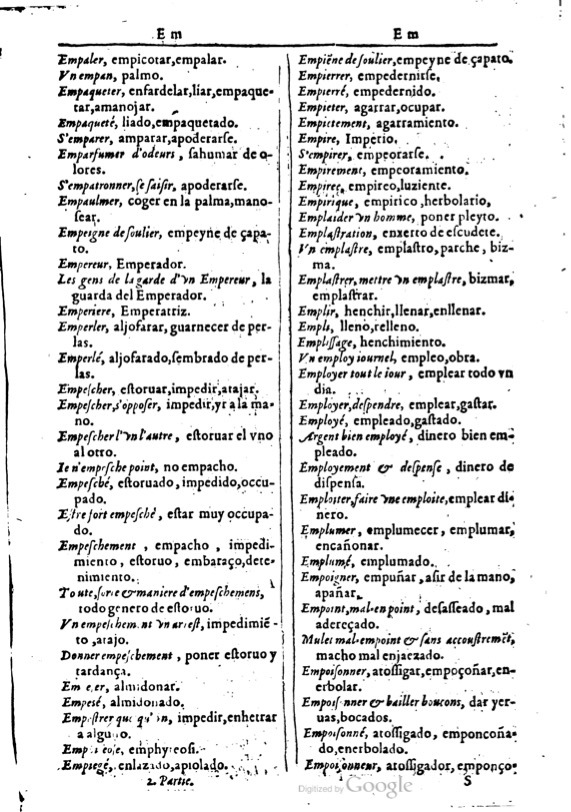 E m
Empaler, empicotar, empalar.
Vn empan, palmo.
Empaqueter, enfardelar, liar, empaque-
tar, amanojar.
Empaqueté, liado, empaquetado.
S'emparer, amparar, apoderarſe.
Emparfumer d'odeurs, ſahumar de o-
lores.
S'empatronner, ſe ſaiſir, apoderarſe.
Empaulmer, coger en la palma, mano-
ſear.
Empeigne de ſoulier, empeyne de çapa-
to.
Empereur, Emperador.
Les gens de la garde d'vn Empereur, la
guarda del Emperador.
Emperiere, Emperatriz.
Emperler, aljofarar, guarnecer de per-
las.
Emperlé, aljofarado, ſembrado de per-
las.
Empeſcher, eſtoruar, impedir, atajar.
Empeſcher, s'oppoſer, impedir, yr a la ma-
no.
Empeſcher l'vn l'autre, eſtoruar el vno
al otro.
Ie n'empeſche point, no empacho.
Empeſché, eſtoruado, impedido, occu-
pado.
Eſtre fort empeſché, eſtar muy occupa-
do.
Empeſchement, empacho, impedi-
miento, eſtoruo, embaraço, dete-
nimiento.
Toute ſorte & maniere d'empeſchemens,
todo genero de eſtoruo.
Vn empeſchement vn arreſt, impedimiē-
to, atajo.
Donner empeſchement, poner eſtoruo y
tardança.
almidonar.
Empesé, almidonado.
Empeſtrer impedir, enhetrar
a alguno.
emphyteoſi.
Empiegé, enlazado, apiolado.
2. Partie.
E m
Empiēne de ſoulier, empeyne de çapato.
Empierrer, empedernirſe.
Empierré, empedernido.
Empieter, agarrar, ocupar.
Empietement, agarramiento.
Empire, Imperio.
S'empirer, empeorarſe.
Empirement, empeoramiento.
Empireę, empireo, luziente.
Empirique, empirico, herbolario,
Emplaider vn homme, poner pleyto.
Emplaſtration, enxerto de eſcudete.
Vn emplaſtre, emplaſtro, parche, biz-
ma.
Emplaſtrer, mettre vn emplaſtre, bizmar,
emplaſtrar.
Emplir, henchir, llenar, enllenar.
Empli, lleno, relleno.
Empliſſage, henchimiento.
Vn employ iournel, empleo, obra.
Employer tout le iour, emplear todo vn
dia.
Employer, deſpendre, emplear, gaſtar.
Employé, empleado, gaſtado.
Argent bien employé, dinero bien em-
pleado.
Employement & deſpenſe, dinero de
diſpenſa.
Emploiter, faire vne emploite, emplear di-
nero.
Emplumer, emplumecer, emplumar,
encañonar.
Emplumé, emplumado.
Empoigner, empuñar, aſir de la mano,
apañar.
Empoint, mal-en point, deſaſſeado, mal
adereçado.
Mulet mal-empoint & ſans accouſtremēt,
macho mal enjaezado.
Empoiſonner, atoſſigar, empoçoñar, en-
erbolar.
Empoiſonner & bailler boucons, dar yer-
uas, bocados.
Empoiſonné, atoſſigado, emponçoña-
do, enerbolado.
Empoiſonneur, atoſſigador, emponço-
S
Digitized by Google